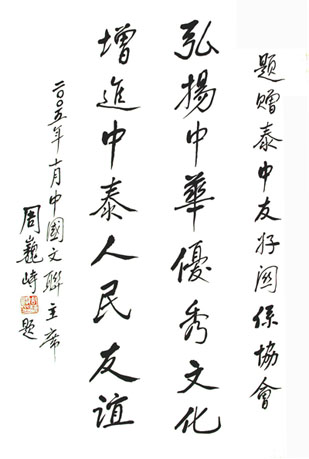 題贈泰中友好關係協會
弘揚中華優秀文化
增進中泰人民友誼
二〇〇五年十月中國文聯主席
周巍峙題